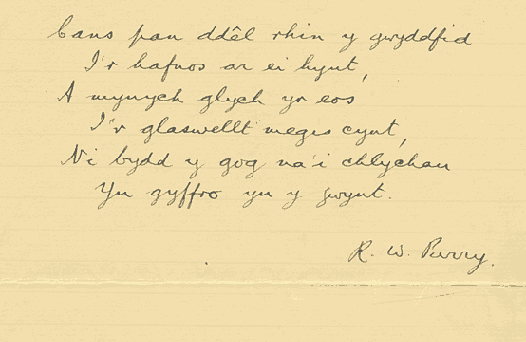 Cans pan ddêl rhin y gwyddfid
I'r hafnos ar ei hynt,
A mynych glych yr eos
I'r glaswellt megis cynt,
Ni bydd y gog na'i chlychau
Yn gyffro yn y gwynt.
R. W. Parry.